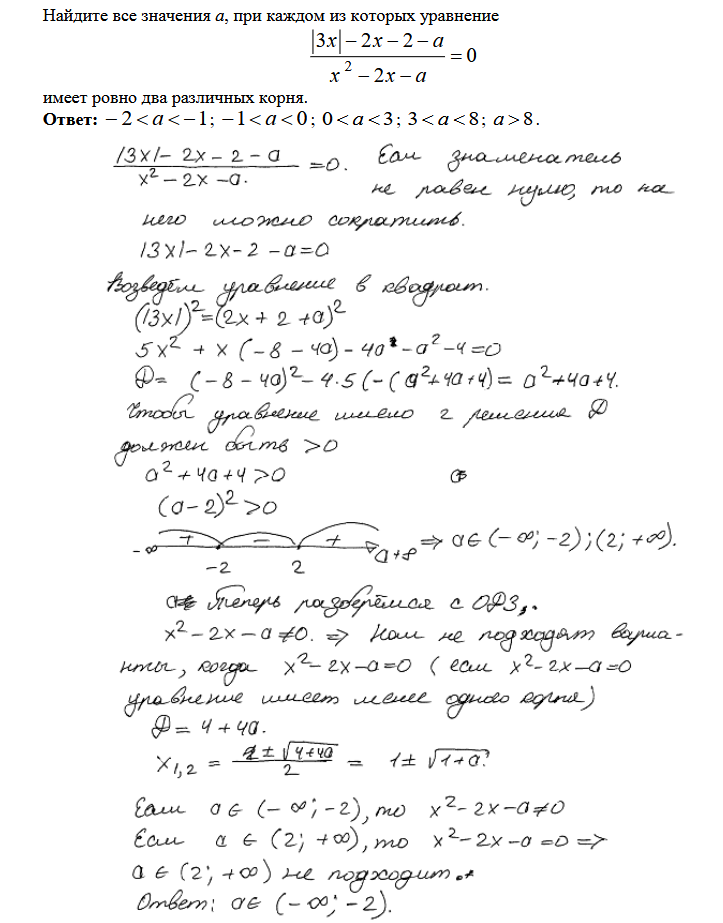 Найдите все значения a, при каждом из которых уравнение
|3x| − 2x − 2 − a / x² − 2x − a = 0
имеет ровно два различных корня.
Ответ: −2 < a < −1; −1 < a < 0; 0 < a < 3; 3 < a < 8; a > 8.
|3x| − 2x − 2 − a / x² − 2x − a. = 0. Если знаменатель
не равен нулю, то на
него можно сократить.
|3x| − 2x − 2 − a = 0
Возведём уравнение в квадрат.
(|3x|)² = (2x + 2 + a)²
5x² + x(−8 − 4a) − 4a − a² − 4 = 0
D = (−8 − 4a)² − 4·5(−(a² + 4a + 4) = a² + 4a + 4.
Чтобы уравнение имело 2 решения D
должен быть > 0
a² + 4a + 4 > 0
(a − 2)² > 0
−∞ + −2 − 2 + a +∞ ⇒ a ∈ (−∞; −2); (2; +∞).
Теперь разберёмся с ОДЗ,.
x² − 2x − a ≠ 0. ⇒ Нам не подходят вариа-
нты, когда x² − 2x − a = 0 (если x² − 2x − a = 0
уравнение имеет менее одного корня)
D = 4 + 4a.
x₁,₂ = 2 ± √4+4a / 2 = 1 ± √1+a.
Если a ∈ (−∞; −2), то x² − 2x − a ≠ 0
Если a ∈ (2; +∞), то x² − 2x − a = 0 ⇒
a ∈ (2; +∞) не подходит.
Ответ: a ∈ (−∞; −2).